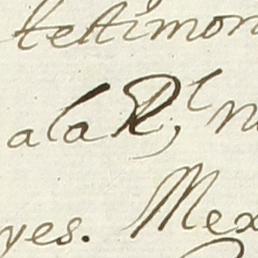 testimon
ala Rl, n
yes. Mex